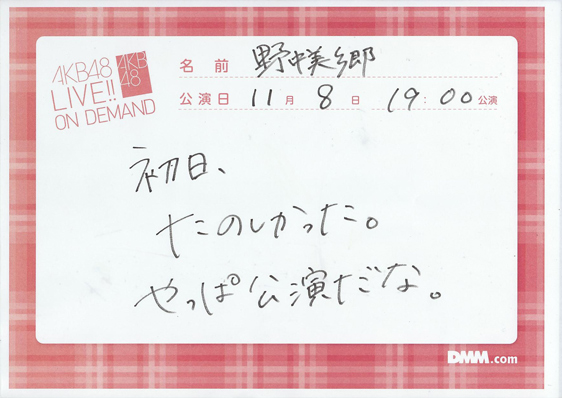 AKB48
LIVE!!
ON DEMAND
AKB
48
名前 野中美郷
公演日 11月8日 19:00公演
初日、
たのしかった。
やっぱ公演だな。
DMM.com